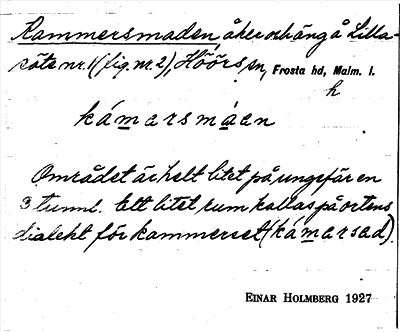 Kammersmaden, åker och äng å Lilla-
söte nr. 1 (fig. nr. 2), Höörs sn, Frosta hd, Malm. l.
h
kámarsmáen
Området är helt litet på ungefär en
3 tunnl. Ett litet rum kallas på ortens
dialekt för kammerset (kámarsad).
EINAR HOLMBERG 1927